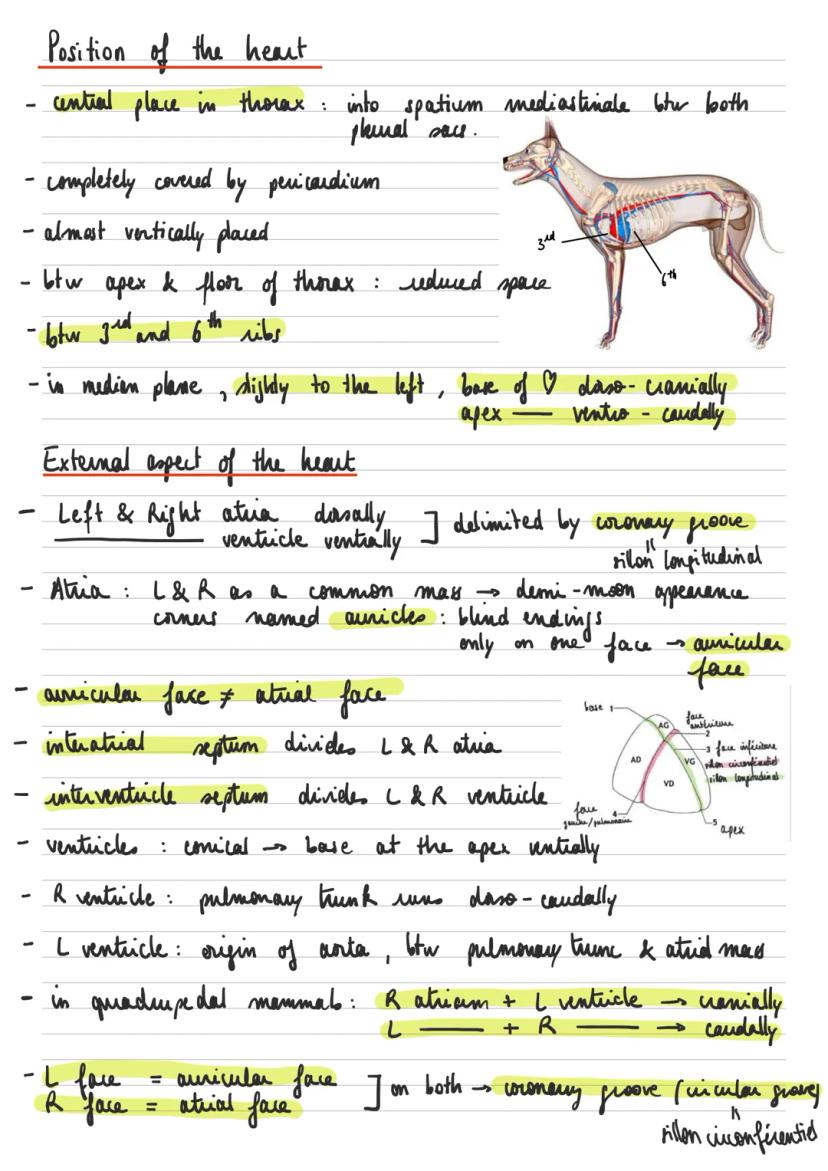 Position of the heart
- central place in thorax : into spatium mediastinale btw both
pleural sacs.
- completely covered by pericardium
- almost vertically placed
3rd
6th
- btw apex & floor of thorax : reduced space
- btw 3rd and 6th ribs
- in median plane, slightly to the left, base of ♡ dorso-cranially
apex — ventro-caudally
External aspect of the heart
- Left & Right atria dorsally ] delimited by coronary groove
ventricle ventrally
sillon longitudinal
- Atria : L & R as a common mass → demi-moon appearance
corners named auricles : blind endings
only on one face → auricular
face
- auricular face ≠ atrial face
- interatrial septum divides L & R atria
- interventricle septum divides L & R ventricle
base 1
face
antérieure
2
3 face inférieure
sillon circonférentiel
sillon longitudinal
AG
AD
VG
VD
4
face
gauche/pulmonaire
5
apex
- ventricles : conical → base at the apex ventrally
- R ventricle : pulmonary trunk runs dorso-caudally
- L ventricle : origin of aorta, btw pulmonary trunc & atrial mass
- in quadrupedal mammals : R atrium + L ventricle → cranially
L — + R — → caudally
- L face = auricular face ] on both → coronary groove (circular groove)
R face = atrial face
=
sillon circonférentiel